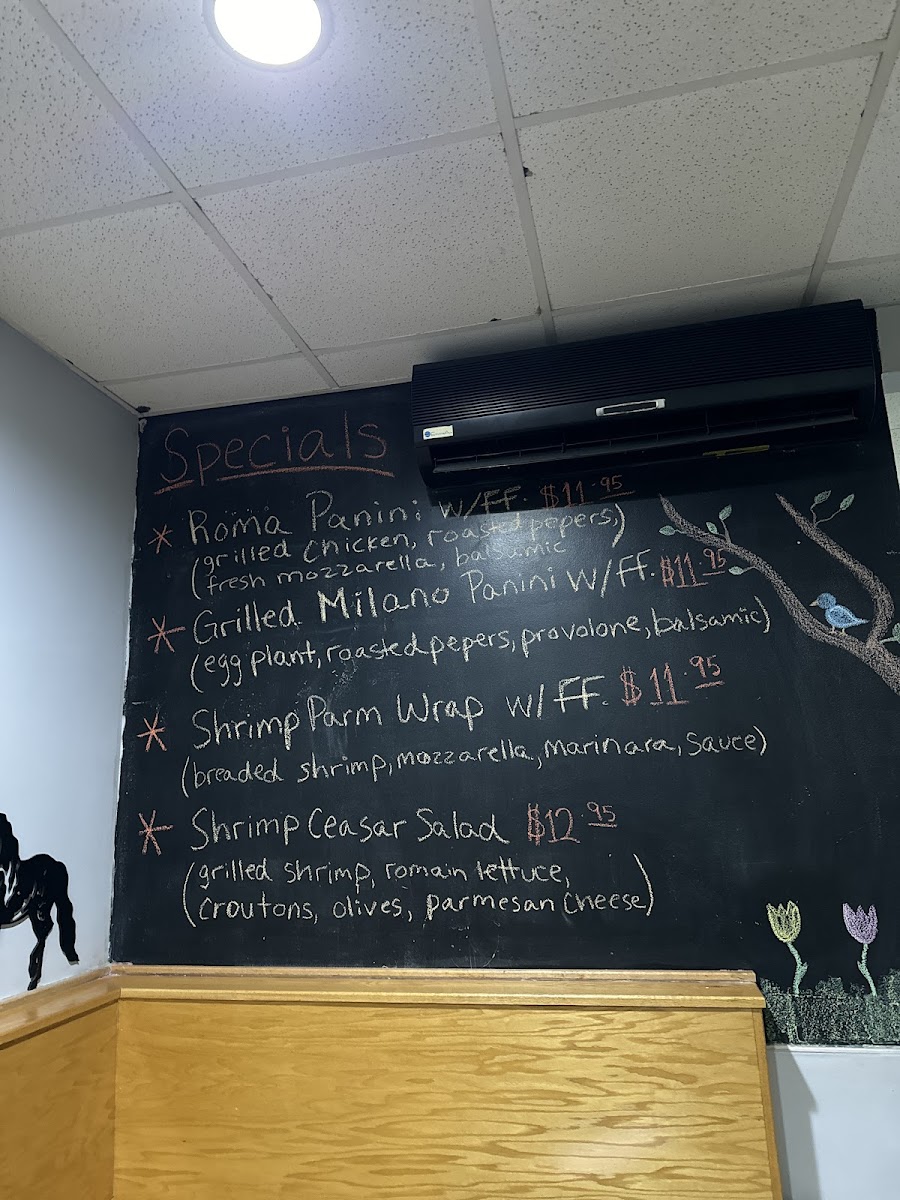 Specials
* Roma Panini w/FF. $11.95
(grilled chicken, roasted pepers,
fresh mozzarella, balsamic)
* Grilled Milano Panini w/FF. $11.95
(egg plant, roasted pepers, provolone, balsamic)
* Shrimp Parm Wrap w/FF. $11.95
(breaded shrimp, mozzarella, marinara, sauce)
* Shrimp Ceasar Salad $12.95
(grilled shrimp, romain lettuce,
croutons, olives, parmesan cheese)